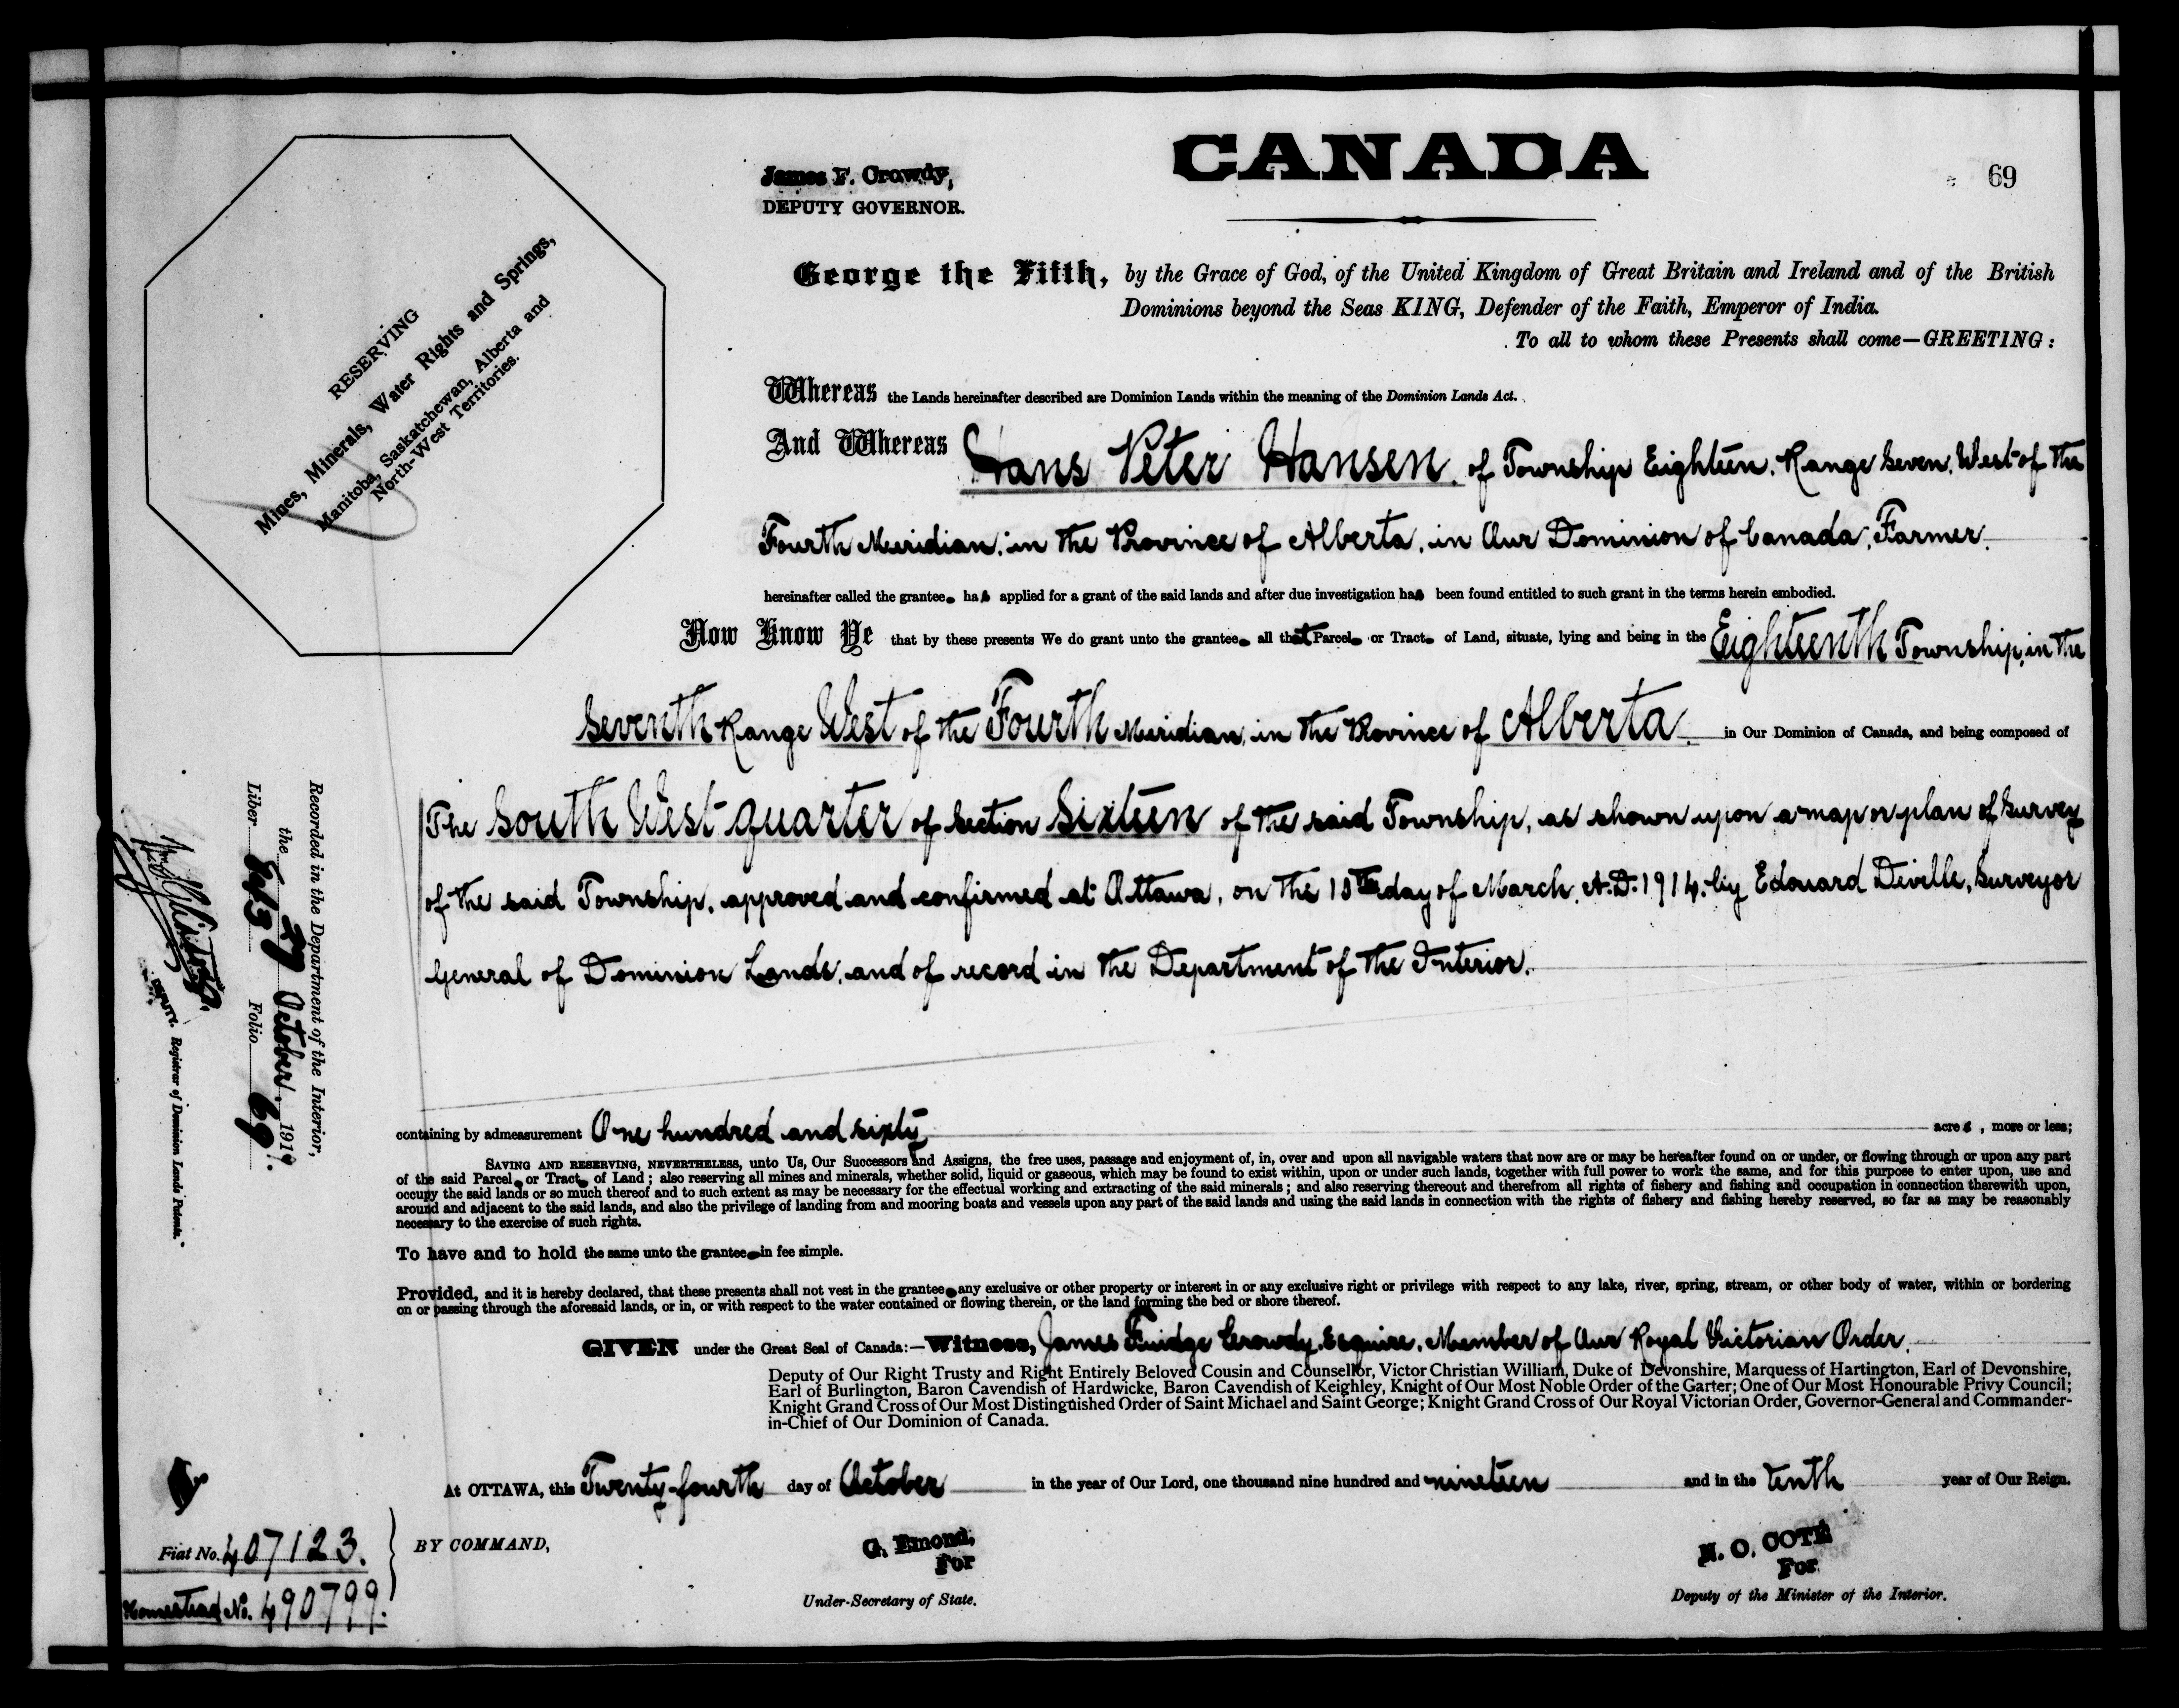 CANADA
69
James F. Crowdy,
DEPUTY GOVERNOR.
George the Fifth, by the Grace of God, of the United Kingdom of Great Britain and Ireland and of the British
Dominions beyond the Seas KING, Defender of the Faith, Emperor of India.
To all to whom these Presents shall come—GREETING:
RESERVING
Mines, Minerals, Water Rights and Springs,
Manitoba, Saskatchewan, Alberta and
North-West Territories.
Whereas the Lands hereinafter described are Dominion Lands within the meaning of the Dominion Lands Act.
And Whereas Hans Peter Hansen, of Township Eighteen, Range Seven, West of the
Fourth Meridian, in the Province of Alberta, in Our Dominion of Canada, Farmer.
hereinafter called the grantee, has applied for a grant of the said lands and after due investigation has been found entitled to such grant in the terms herein embodied.
Now Know Ye that by these presents We do grant unto the grantee all that Parcel or Tract of Land, situate, lying and being in the Eighteenth Township, in the
Seventh Range West of the Fourth Meridian, in the Province of Alberta. in Our Dominion of Canada, and being composed of
The South West quarter of Section Sixteen of the said Township, as shown upon a map or plan of Survey
of the said Township, approved and confirmed at Ottawa, on the 18th day of March, A.D. 1914, by Edouard Deville, Surveyor
General of Dominion Lands, and of record in the Department of the Interior.
containing by admeasurement One hundred and sixty acres, more or less;
SAVING AND RESERVING, NEVERTHELESS, unto Us, Our Successors and Assigns, the free uses, passage and enjoyment of, in, over and upon all navigable waters that now are or may be hereafter found on or under, or flowing through or upon any part
of the said Parcel or Tract of Land; also reserving all mines and minerals, whether solid, liquid or gaseous, which may be found to exist within, upon or under such lands, together with full power to work the same, and for this purpose to enter upon, use and
occupy the said lands or so much thereof and to such extent as may be necessary for the effectual working and extracting of the said minerals; and also reserving thereout and therefrom all rights of fishery and fishing and occupation in connection therewith upon,
around and adjacent to the said lands, and also the privilege of landing from and mooring boats and vessels upon any part of the said lands and using the said lands in connection with the rights of fishery and fishing hereby reserved, so far as may be reasonably
necessary to the exercise of such rights.
To have and to hold the same unto the grantee in fee simple.
Provided, and it is hereby declared, that these presents shall not vest in the grantee any exclusive or other property or interest in or any exclusive right or privilege with respect to any lake, river, spring, stream, or other body of water, within or bordering
on or passing through the aforesaid lands, or in, or with respect to the water contained or flowing therein, or the land forming the bed or shore thereof.
GIVEN under the Great Seal of Canada:—Witness, James Fuidge Crowdy, Esquire, Member of Our Royal Victorian Order,
Deputy of Our Right Trusty and Right Entirely Beloved Cousin and Counsellor, Victor Christian William, Duke of Devonshire, Marquess of Hartington, Earl of Devonshire,
Earl of Burlington, Baron Cavendish of Hardwicke, Baron Cavendish of Keighley, Knight of Our Most Noble Order of the Garter; One of Our Most Honourable Privy Council;
Knight Grand Cross of Our Most Distinguished Order of Saint Michael and Saint George; Knight Grand Cross of Our Royal Victorian Order, Governor-General and Commander-
in-Chief of Our Dominion of Canada.
At OTTAWA, this Twenty-fourth day of October in the year of Our Lord, one thousand nine hundred and nineteen and in the tenth year of Our Reign.
BY COMMAND,
G. Emond,
For
Under-Secretary of State.
N. O. COTÉ
For
Deputy of the Minister of the Interior.
Recorded in the Department of the Interior,
the 27 October. 1919.
Liber 643 Folio 69
DEPUTY. Registrar of Dominion Lands Patents.
Fiat No. 407123.
Homestead No. 490799.